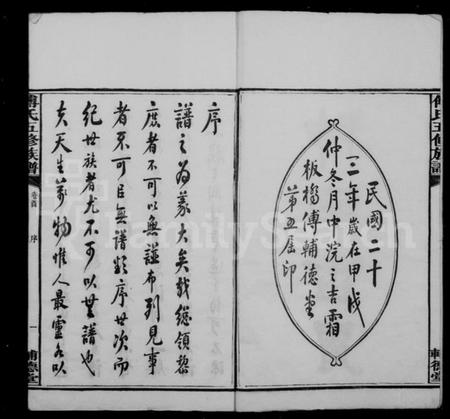 傅氏五修族譜
輔德堂
民國二十
三年歲在甲戌
仲冬月中浣之吉霜
板橋傅輔德堂
第五屆印
序
譜之為義大矣哉總領黎
庶者不可以無謚布列見事
者不可㠯無譜類序世次而
紀世族者尤不可以無譜也
夫天生萬物惟人最靈名以
傅氏五修族譜
卷首
序
一
輔德堂
FamilySearch